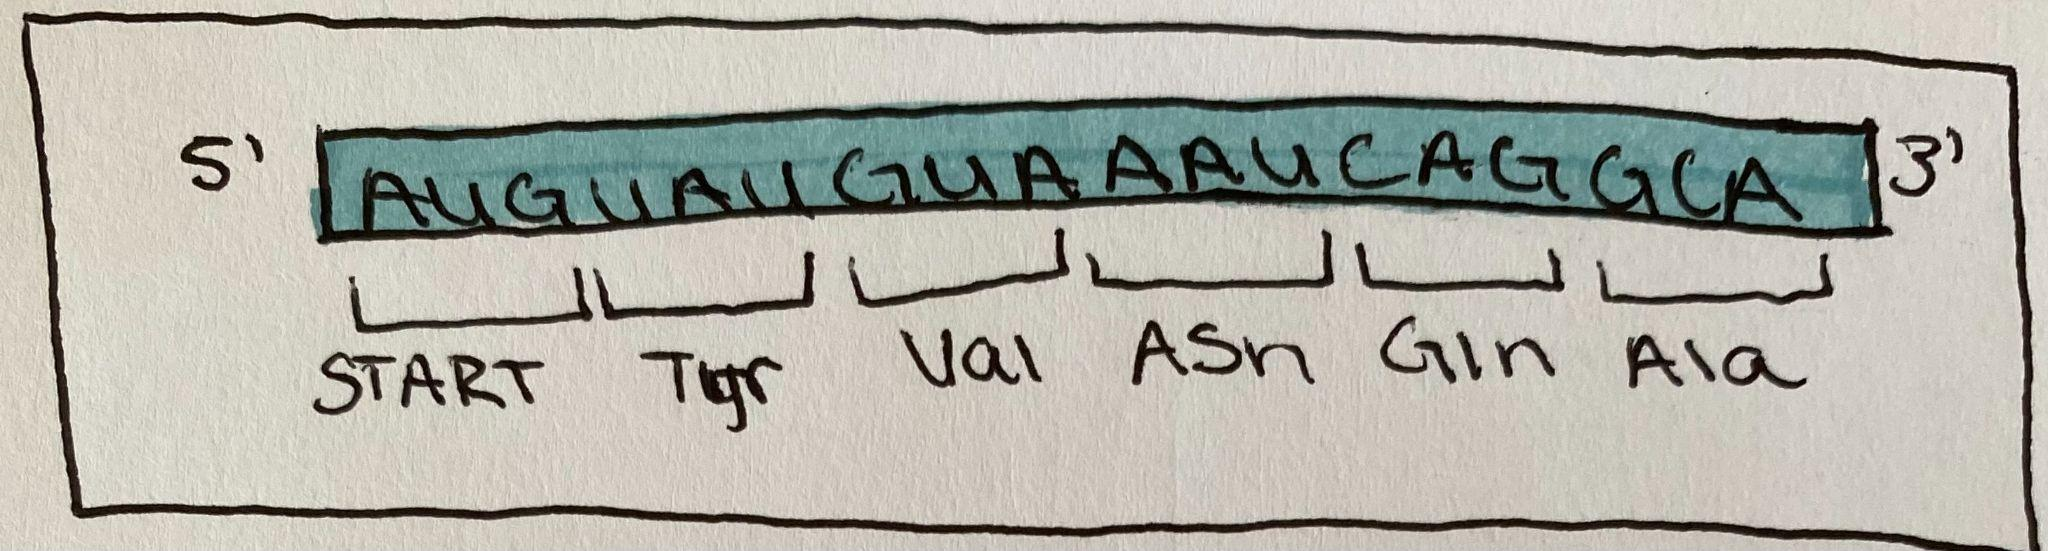 5' AUGUAUGUAAAUCAGGCA 3'
START Tyr Val ASn Gln Ala